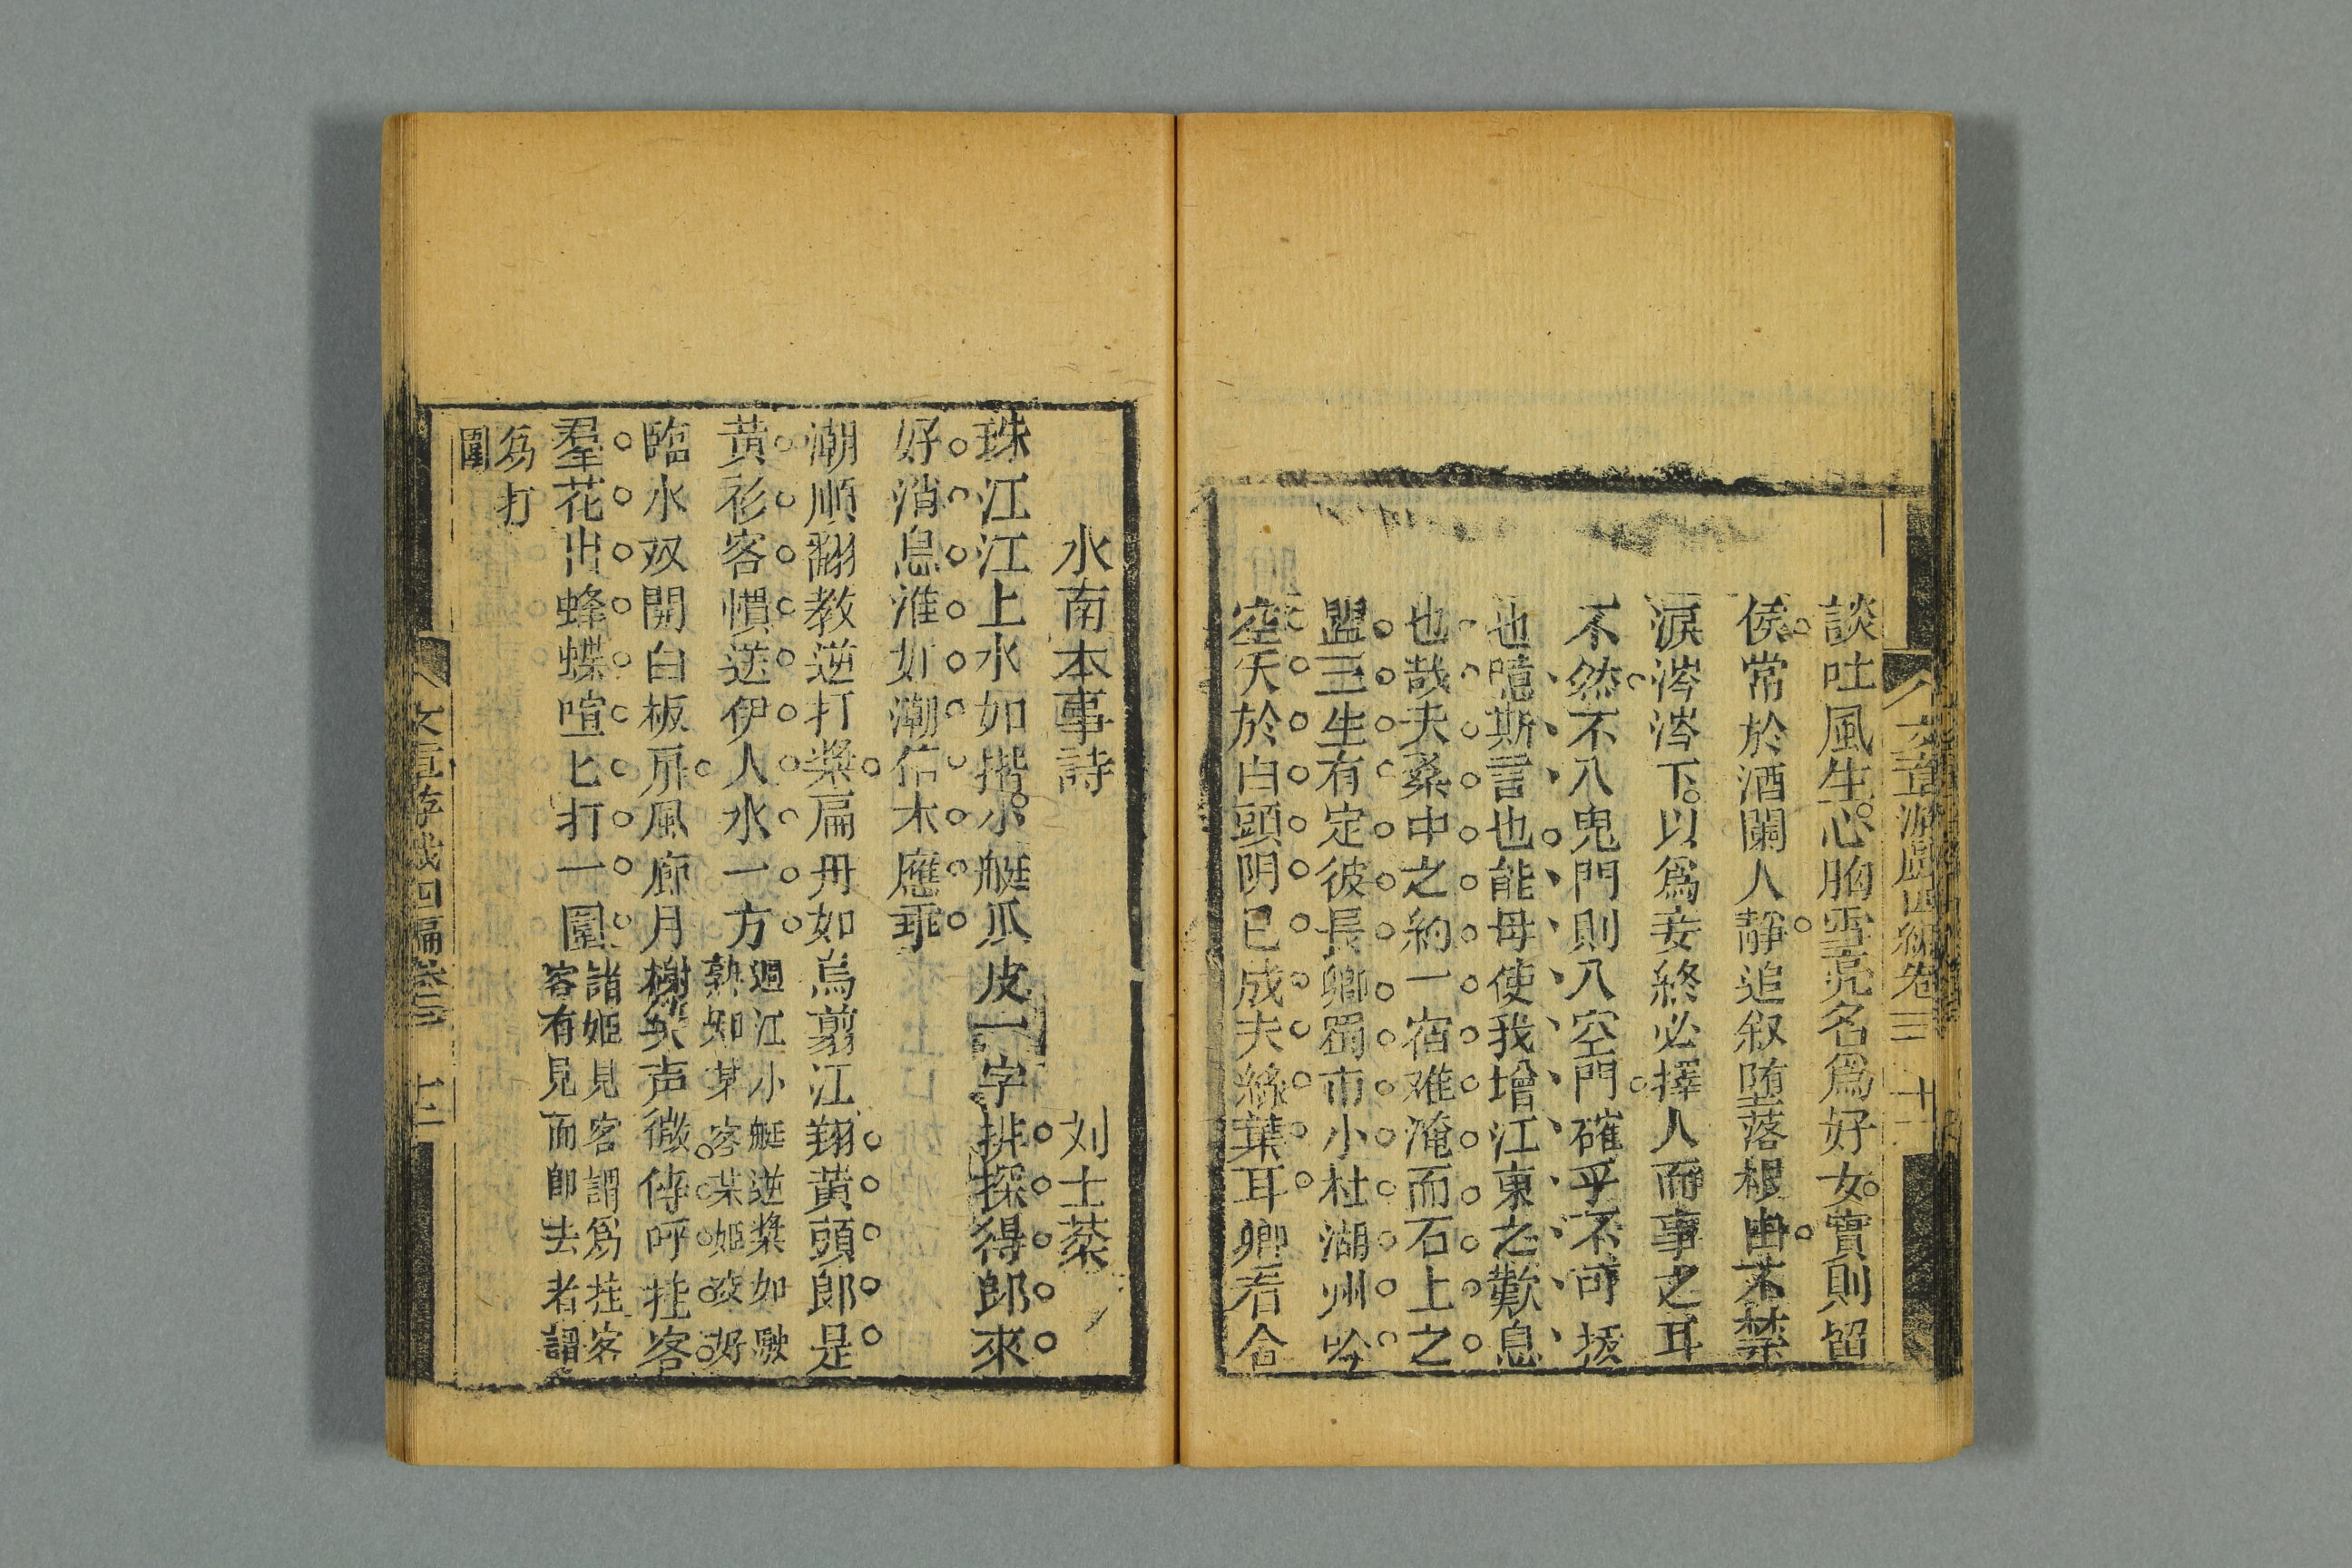 談吐風生心胸雪亮名爲好女實則留
侯常於酒闌人靜追叙堕落根由不禁
淚涔涔下以爲妾終必擇人而事之耳
不然不入鬼門則入空門確乎不可拔
也噫斯言也能毋使我增江東之歎息
也哉夫桑中之約一宿难淹而石上之
盟三生有定彼長卿蜀市小杜湖州吟
空矢於白頭阴已成夫綠葉耳卿看合
文章游戲四編卷三 十一
水南本事詩 刘士棻
珠江江上水如揩小艇瓜皮一字排探得郎來
好消息淮如潮信木應乖
潮順翻教逆打槳扁舟如烏剪江翔黄頭郎是
黄衫客慣送伊人水一方
迴江小艇逆槳如駛
熟如某客某姬姣好
臨水双開白板扉風廊月榭笑声微傳呼挂客
羣花出蜂蝶喧匕打一圍
諸姬見客謂爲挂客
客有見而即去者謂
爲打
圍
文章游戲四編卷三 十二